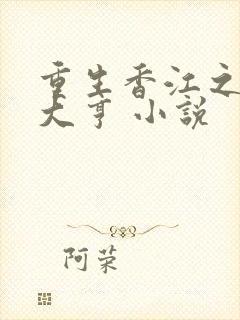 重生香江之
大亨 小說
阿荣